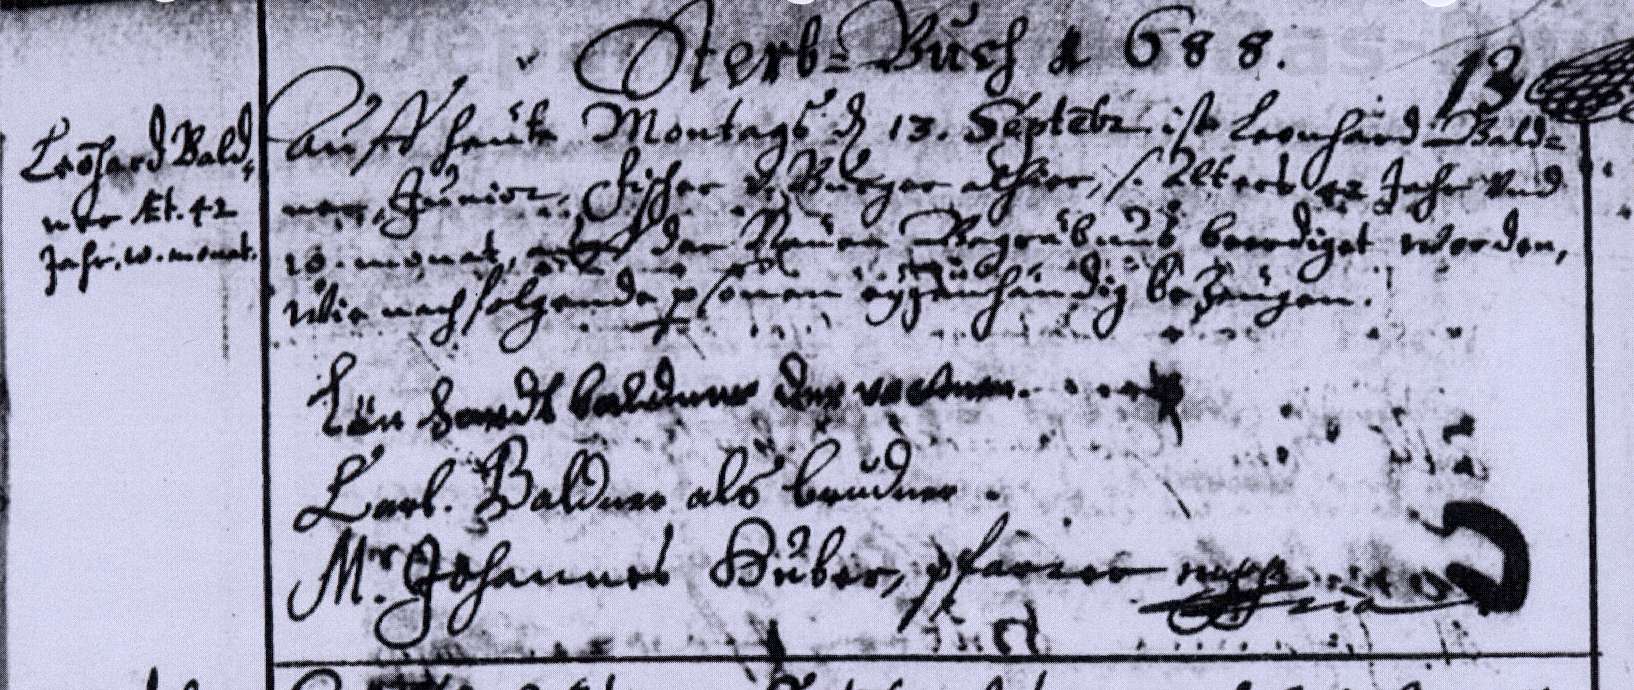 Sterb-Buch 1688.
13
Leohard Bald,
ner Æt. 42
Jahr. 10. monat.
Auff heute Montags d 13. Septebr. ist Leonhard Bald-
ner, Junior, Fischer v. Burger alhier, s. Alters 42 Jahr und
10. monat, auff der Neuen Begräbnus beerdiget worden,
Wie nachfolgende psonen eÿgenhändig bezeugen.
Lün hardt baldner der
Carl. Baldner als bruder.
Mr. Johannes Huber, pfarrer